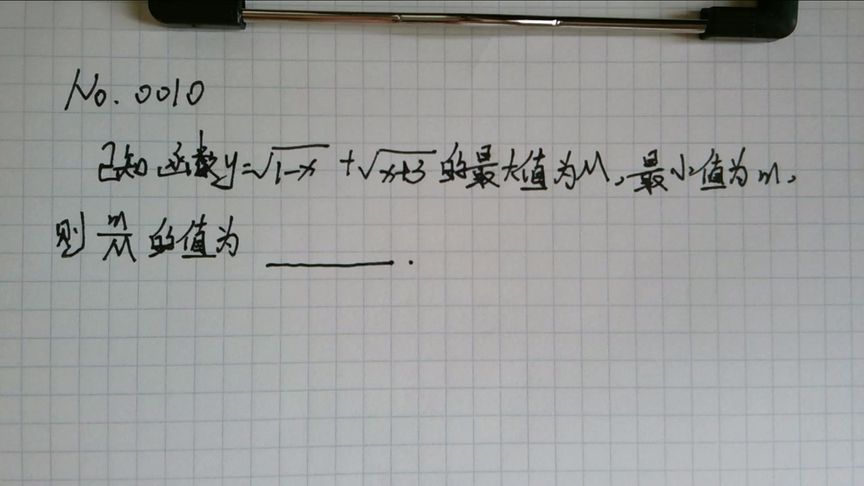 No. 0010
已知函数y=√(1-x) +√(x+3) 的最大值为M,最小值为m,
则 m/M 的值为 ______.